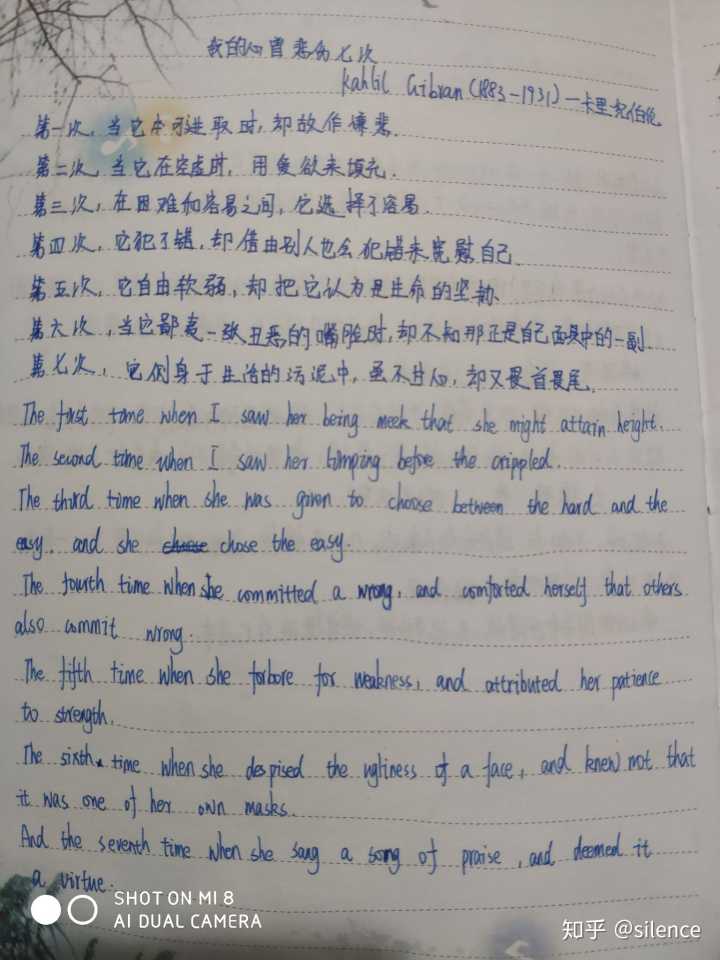 我的心曾悲伤七次
Kahlil Gibran (1883-1931)—卡里·纪伯伦
第一次,当它本可进取时,却故作谦卑.
第二次,当它在空虚时,用爱欲来填充.
第三次,在困难和容易之间,它选择了容易.
第四次,它犯了错,却借由别人也会犯错来宽慰自己.
第五次,它自由软弱,却把它认为是生命的坚韧.
第六次,当它鄙夷一张丑恶的嘴脸时,却不知那正是自己面具中的一副.
第七次,它侧身于生活的污泥中,虽不甘心,却又畏首畏尾.
The first time when I saw her being meek that she might attain height.
The second time when I saw her limping before the crippled.
The third time when she was given to choose between the hard and the
easy. and she choose chose the easy.
The fourth time when she committed a wrong, and comforted herself that others
also commit wrong.
The fifth time when she forbore for weakness, and attributed her patience
to strength.
The sixth time when she despised the ugliness of a face, and knew not that
it was one of her own masks.
And the seventh time when she sang a song of praise, and deemed it
a virtue.
SHOT ON MI 8
AI DUAL CAMERA
知乎 @silence